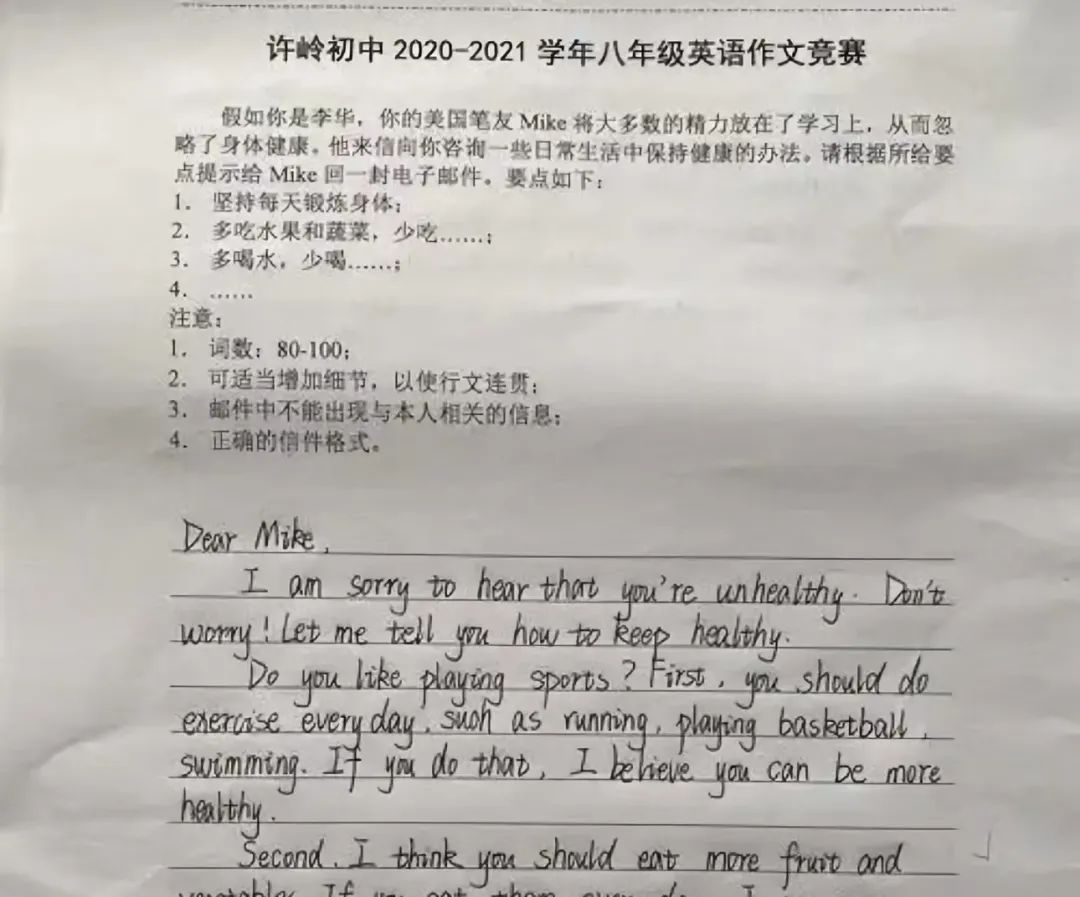 许岭初中 2020-2021 学年八年级英语作文竞赛
假如你是李华，你的美国笔友 Mike 将大多数的精力放在了学习上，从而忽
略了身体健康。他来信向你咨询一些日常生活中保持健康的办法。请根据所给要
点提示给 Mike 回一封电子邮件。要点如下：
1. 坚持每天锻炼身体；
2. 多吃水果和蔬菜，少吃……；
3. 多喝水，少喝……；
4. ……
注意：
1. 词数：80-100；
2. 可适当增加细节，以使行文连贯；
3. 邮件中不能出现与本人相关的信息；
4. 正确的信件格式。
Dear Mike,
I am sorry to hear that you're unhealthy. Don't
worry! Let me tell you how to keep healthy.
Do you like playing sports? First, you should do
exercise every day, such as running, playing basketball,
swimming. If you do that, I believe you can be more
healthy.
Second, I think you should eat more fruit and
If you eat them every day, I